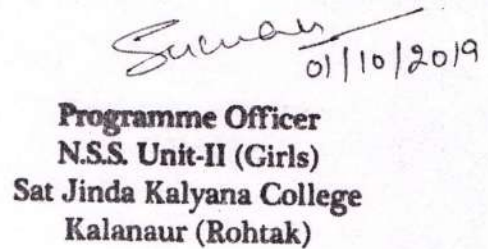 Suman
01/10/2019
Programme Officer
N.S.S. Unit-II (Girls)
Sat Jinda Kalyana College
Kalanaur (Rohtak)